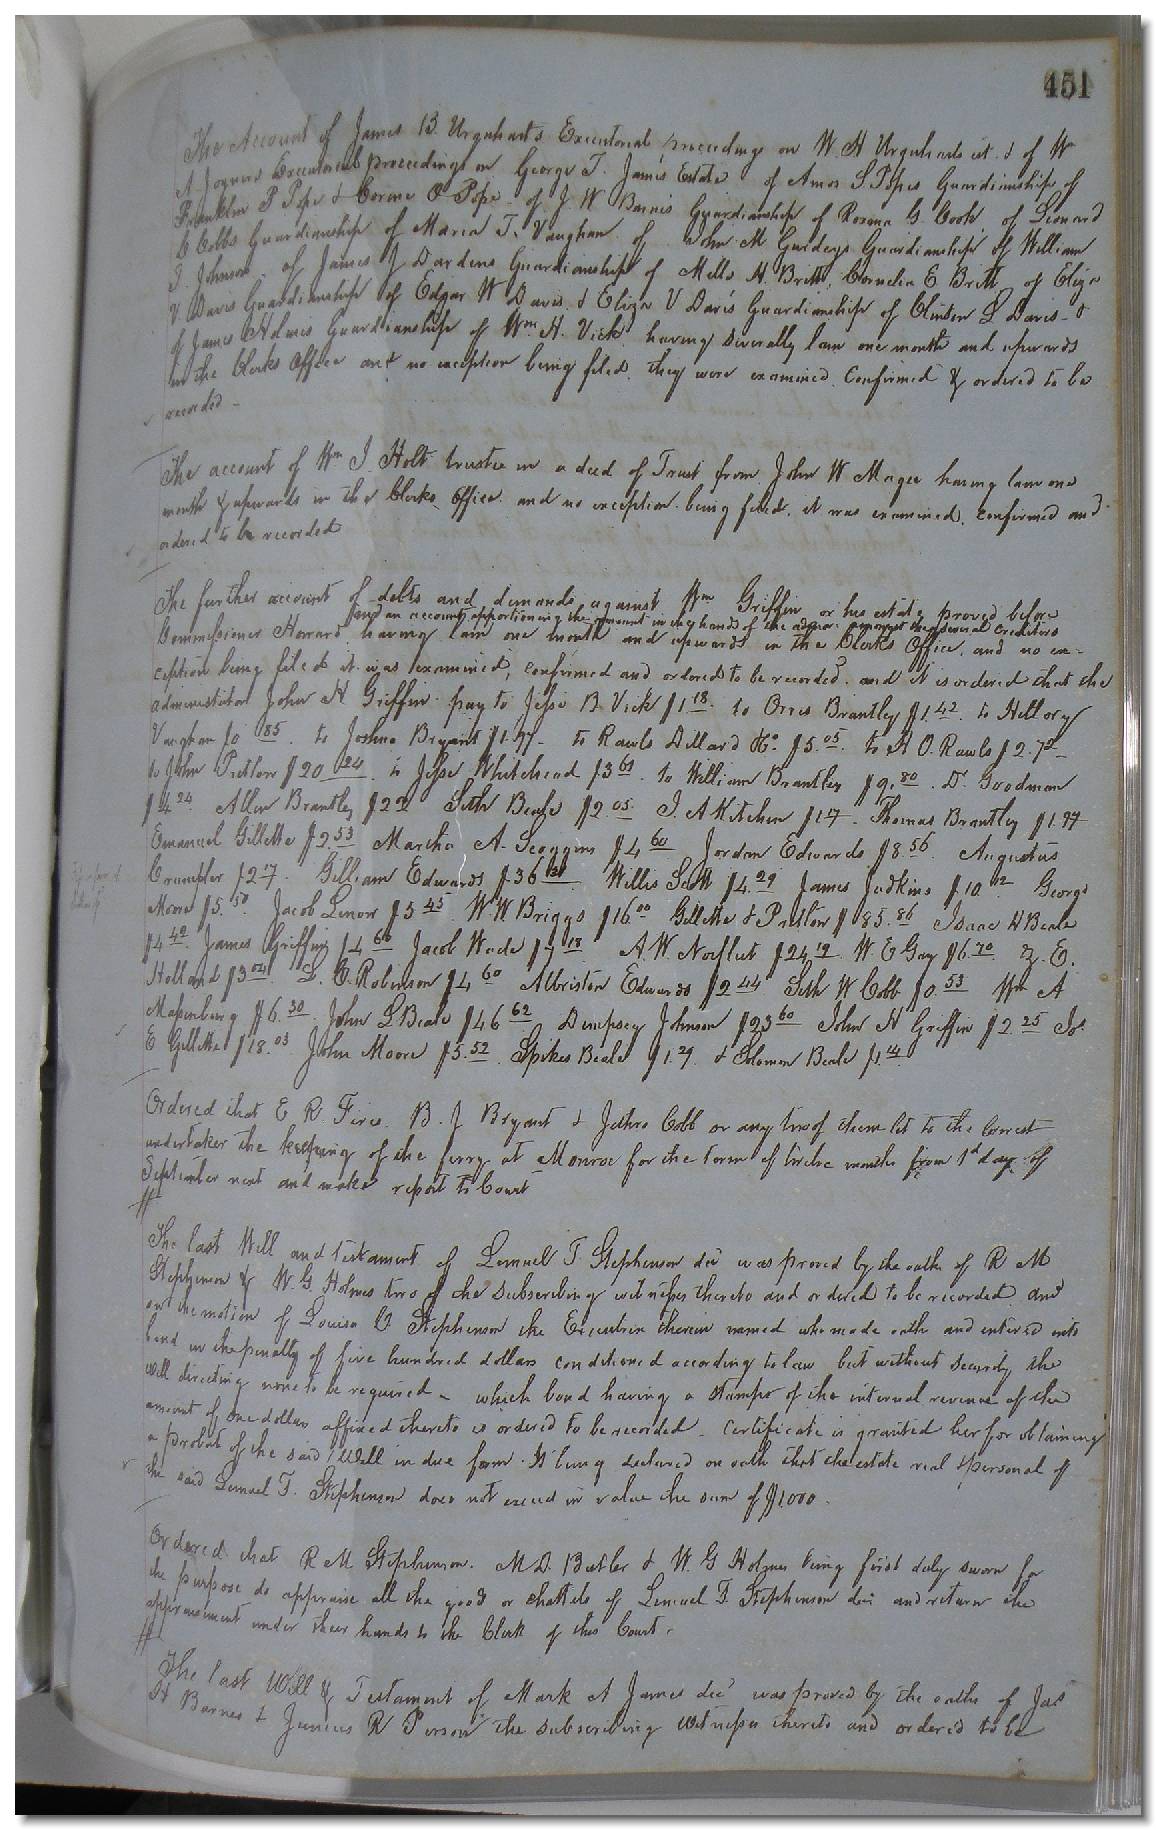 451
The Account of James B. Urquharts Executorial proceedings on W. H Urquharts est. & of Wm
A Joyners Executorial proceedings on George T. James Estate of Amos S. Popes Guardianship of
Franklin P Pope & Corrine O Pope - of J W Barnes Guardianship of Rosena G. Cook of Leonard
C Cobbs Guardianship of Maria T. Vaughan of John M Gurleys Guardianship of William
J. Johnson of James J Dardens Guardianship of Mills H. Britt, Cornelia E Britt of Eliza
V. Davis Guardianship of Edgar W Davis & Eliza V Davis Guardianship of Clinton L Davis - &
of James Holmes Guardianship of Wm H. Vick having severally lain one month and upwards
in the Clerks Office and no exception being filed, they were examined, confirmed & ordered to be
recorded -
The account of Wm J. Holt trustee in a deed of Trust from John W Magee having lain one
month & upwards in the Clerks Office and no exception being filed, it was examined, confirmed and
ordered to be recorded
The further account of debts and demands against Wm Griffin or his estate proved before
and an account apportioning the amount in the hands of the admor. amongst the several creditors
Commissioner Howard having lain one month and upwards in the Clerks Office, and no ex-
ception being filed it was examined, confirmed and ordered to be recorded. and it is ordered that the
administrator John H Griffin pay to Jesse B. Vick $1.18 to Orris Brantley $1.42 to Hillory
Vaughan $0.85 to Joshua Bryant $1.77 - to Rawls Dillard & Co. $5.05 to A O. Rawls $2.72
to John Pretlow $20.24 to Jesse Whitehead $3.61 to William Brantley $9.80. D. Goodman
$4.24 Allen Brantley Seth Beale $2.05 J. A Kitchen $1.17 - Thomas Brantley $1.77
Emanuel Gillette $2.53 Martha A Scoggins $4.60 Jordan Edwards $8.56 Augustus
Crumpler $2.17 Gilliam Edwards Willis Scott $4.29 James Judkins $10.12 George
Moore $5.50 Jacob Lenow $3.45 W W Briggs $16.00 Gillette & Pretlow $85.86 Isaac W Beale
$4.42 James Griffin $4.60 Jacob Wade A. W. Norfleet $24.19 W. E Gay $6.70 Z. E.
Holland $3.04 L. C. Robinson $4.60 Albriston Edwards $2.44 Seth W Cobb $0.53 Wm A
Massenburg $6.30 John L Beale $46.62 Dempsey Johnson $23.60 John H Griffin $2.25 Jos.
E Gillette $18.03 John Moore $5.52 Spikes Beale $1.29 & Solomon Beale $1.14
Ordered that E R. B. J Bryant & Jethro Cobb or any two of them let to the lowest
undertaker the keeping of the ferry at Monroe for the term of twelve months from 1st day of
September next and make report to Court
The last Will and testament of Lemuel T Stephenson dec. was proved by the oaths of R M
Stephenson & W. G. Holmes two of the subscribing witnesses thereto and ordered to be recorded and
on the motion of Louisa C Stephenson the Executrix therein named who made oath and entered into
bond in the penalty of five hundred dollars conditioned according to law but without security the
will directing none to be required - which bond having a stamp of the internal revenue of the
amount of one dollar affixed thereto is ordered to be recorded. Certificate is granted her for obtaining
a probat of the said Will in due form. It being declared on oath that the estate real & personal of
the said Lemuel T. Stephenson does not exceed in value the sum of $1000.
Ordered that R M Stephenson. M. D. Butler & W. G Holmes being first duly sworn for
the purpose do appraise all the goods or chattels of Lemuel T Stephenson dec. and return the
appraisement under their hands to the Clerk of this Court.
The last Will & Testament of Mark A James decd. was proved by the oaths of Jas
H Barnes & Junius R Person the subscribing witnesses thereto and ordered to be